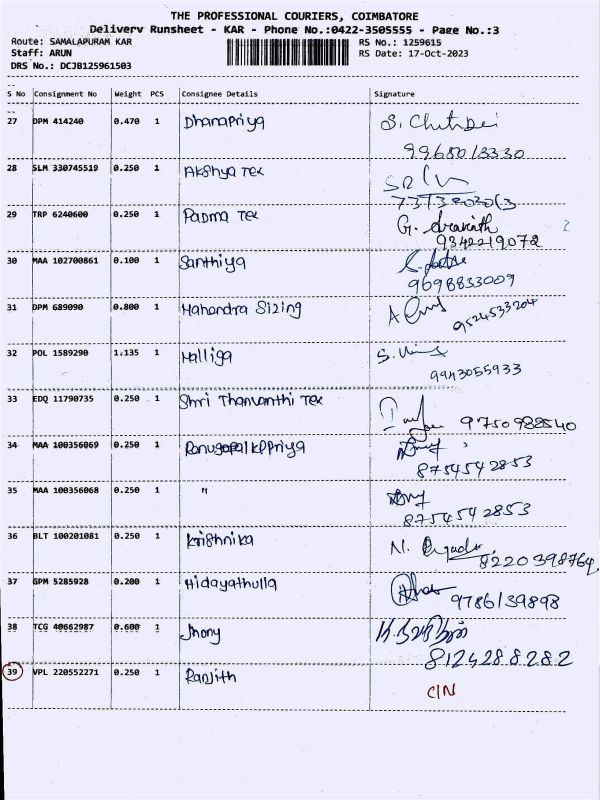 THE PROFESSIONAL COURIERS, COIMBATORE
Delivery Runsheet - KAR - Phone No.:0422-3505555 - Page No.:3
Route: SAMALAPURAM KAR RS No.: 1259615
Staff: ARUN RS Date: 17-Oct-2023
DRS No.: DCJB125961503
S No Consignment No Weight PCS Consignee Details Signature
27 DPM 414240 0.470 1 Dhanapriya
28 SLM 330745519 0.250 1 Akshya Tex
29 TRP 6240600 0.250 1 Padma Tex
9342219072
30 MAA 102700861 0.100 1 Santhiya
9698833009
31 DPM 689090 0.800 1 Mahandra Sizing
9524533204
32 POL 1589290 1.135 1 Malliga
9943055933
33 EDQ 11790735 0.250 1 Shri Thanvanthi Tex
9750988540
34 MAA 100356069 0.250 1
8754542853
35 MAA 100356068 0.250 1 "
8754542853
36 BLT 100201081 0.250 1 Krishnika
8220398764
37 GPM 5285928 0.200 1 Hidayathulla
9786139898
38 TCG 40662987 0.600 1 Jhony
8124288282
39 VPL 220552271 0.250 1 Ranjith
C/N